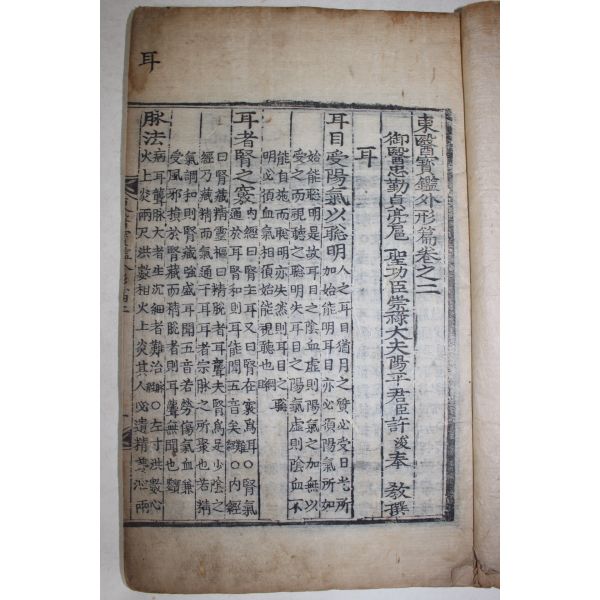 耳
東醫寶鑑外形篇卷之二
御醫忠勤貞亮扈 聖功臣崇祿大夫陽平君臣許浚奉 敎撰
耳
耳目受陽氣以聰明
人之耳目猶月之質必受日光所
加始能明耳目亦必須陽氣所加
始能聰明是故耳目之陰血虛則陽氣之加無以
受之而視聽之聰明失耳目之陽氣虛則陰血不
能自施而聰明亦失然則耳目之聰
明必須血氣相須始能視聽也綱
耳者腎之竅
內經曰腎主耳又曰腎在竅爲耳○腎氣
通於耳腎和則耳能聞五音矣難○內經
曰腎藏精靈樞曰精脫者耳聾夫腎爲足少陰之
經乃藏精而氣通于耳耳者宗脉之所聚也若精
氣調和則腎藏強盛耳聞五音若勞傷氣血兼
受風邪損於腎藏而精脫者則耳聾無聞也類
脉法
病耳聾脉大者生沈細者難治脉○左寸洪數心
火上炎兩尺洪數相火上炎其人必遺精夢泄兩